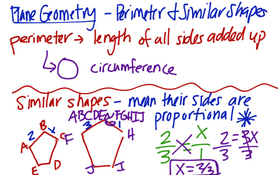 Plane Geometry - Perimeter & Similar Shapes
perimeter → length of all sides added up
↳ circumference
Similar shapes - mean their sides are
proportional *
ABCDE FGHIJ
A B C D E
2 x
F G H I J
3 1
2/3 = x/1
2/3 = 3x/3
x = 2/3